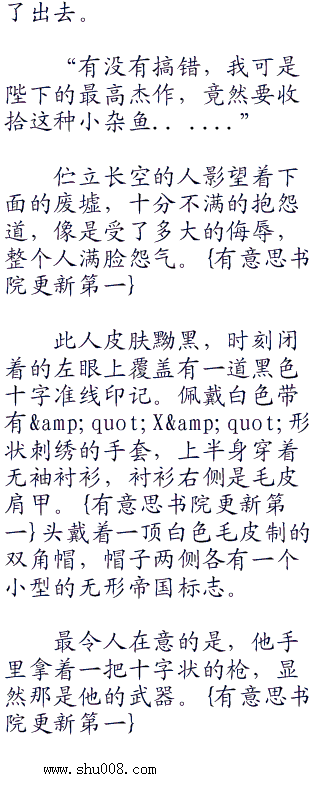 了出去。
“有没有搞错，我可是
陛下的最高杰作，竟然要收
拾这种小杂鱼．．．．．．”
伫立长空的人影望着下
面的废墟，十分不满的抱怨
道，像是受了多大的侮辱，
整个人满脸怨气。{有意思书
院更新第一}
此人皮肤黝黑，时刻闭
着的左眼上覆盖有一道黑色
十字准线印记。佩戴白色带
有&amp;quot;X&amp;quot;形
状刺绣的手套，上半身穿着
无袖衬衫，衬衫右侧是毛皮
肩甲。{有意思书院更新第
一}头戴着一顶白色毛皮制的
双角帽，帽子两侧各有一个
小型的无形帝国标志。
最令人在意的是，他手
里拿着一把十字状的枪，显
然那是他的武器。{有意思书
院更新第一}
www.shu008.com